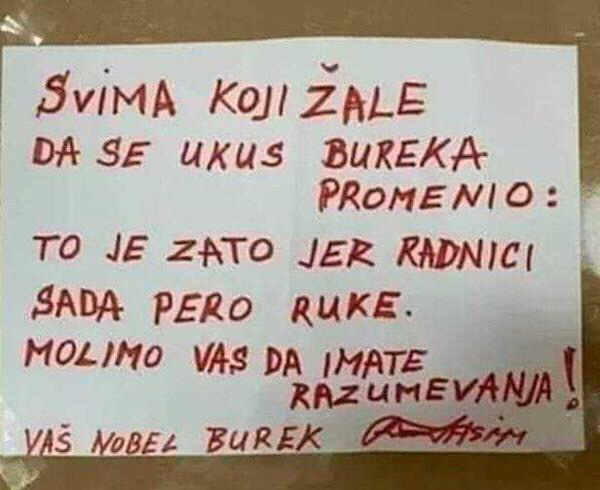 SVIMA KOJI ŽALE
DA SE UKUS BUREKA
PROMENIO:
TO JE ZATO JER RADNICI
SADA PERO RUKE.
MOLIMO VAS DA IMATE
RAZUMEVANJA!
VAŠ NOBEL BUREK